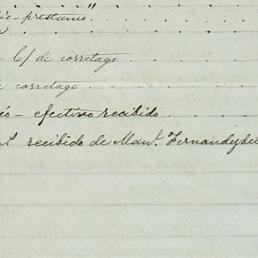 "
prestamo
C/ de corretage
corretage
efectivo recibido
recibido de Man.l Fernandez del